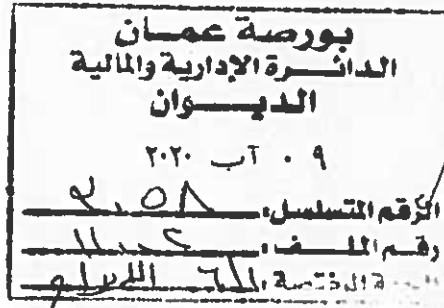 بورصة عمان
الدائرة الإدارية والمالية
الديوان
٠٩ آب ٢٠٢٠
الرقم المتسلسل:
رقم الملف:
الجهة المختصة: